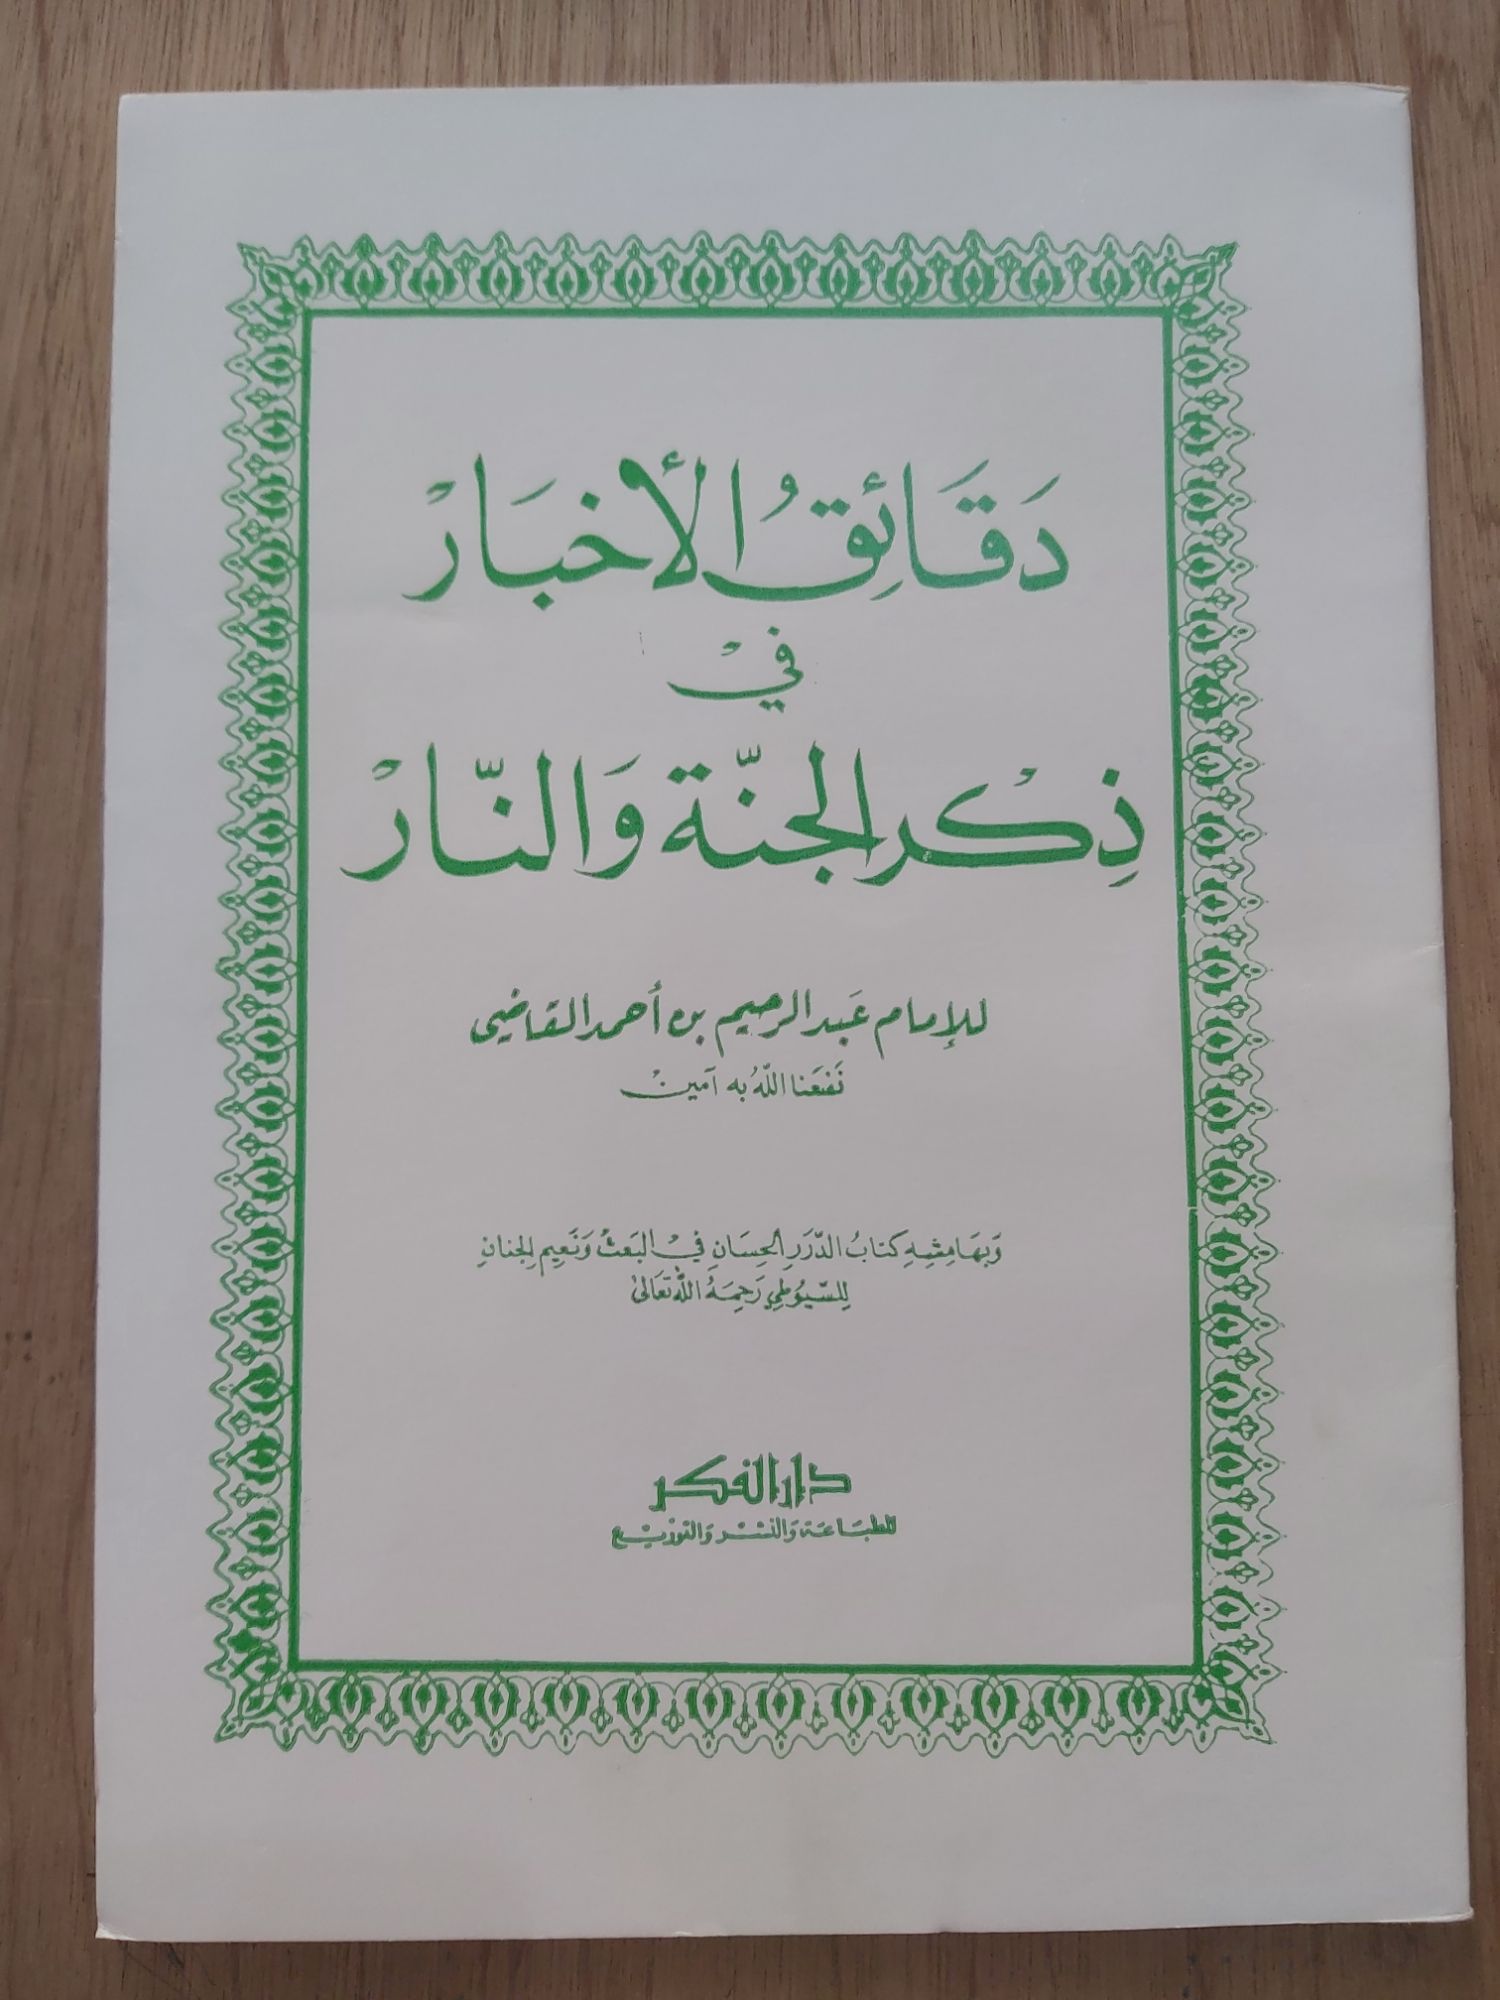 دَقَائِقُ الأَخبَارْ
فيْ
ذِكْر الجنَّة وَالنَّارْ
للإمام عَبد الرحيم بن أحمد القاضي
نَفعَنا اللّهُ به آمينْ
وَبهَامِشِهِ كتابُ الدُّرَرِ الحِسَانِ فيْ البَعثْ وَنَعِيمِ الجنانِ
لِلسّيُوطِي رَحِمَهُ اللّه تعَالىٰ
دار الفكر
للطبَاعَة وَالنشْر وَالتوزيْع